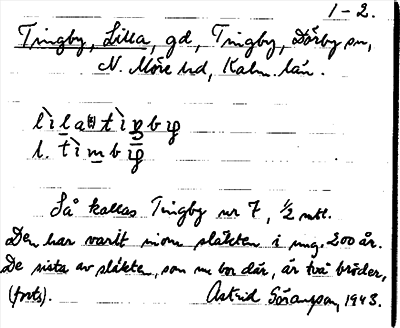 1-2.
Tingby, Lilla, gd, Tingby, Dörby sn,
N. Möre hd, Kalm. län.
l. tìmbig
Så kallas Tingby nr 7, 1/2 mtl.
Den har varit inom släkten i ung. 200 år.
De sista av släkten, som nu bor där, är två bröder,
(forts). Astrid Göransson, 1943.